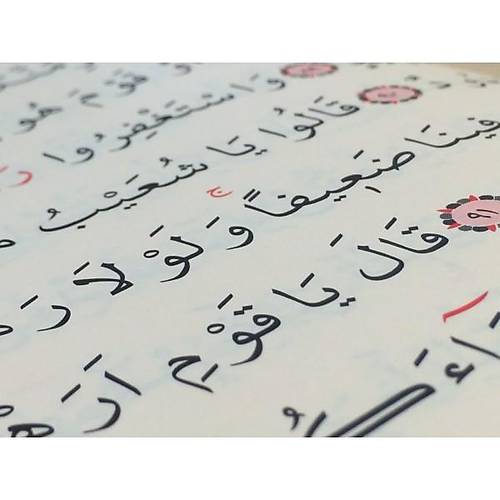 قَوْمَ هُو
وَاسْتَغْفِرُوا رَ
قَالُوا يَا شُعَيْبُ
فِينَا ضَعِيفاً ۚ وَلَوْ لَا رَ
٩١ قَالَ يَا قَوْمِ اَرَهْ
َاءَكُ